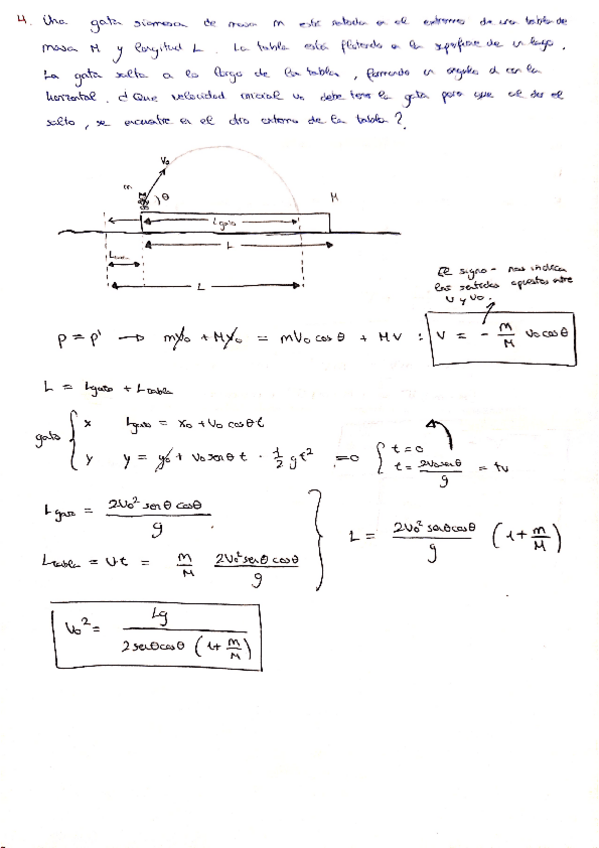 4. Una gata siamesa de masa m está sentada en el extremo de una tabla de
masa M y longitud L. La tabla está flotando en la superficie de un lago.
La gata salta a lo largo de la tabla, formando un angulo α con la
horizontal. ¿Que velocidad inicial v₀ debe tener la gata para que al dar el
salto, se encuentre en el otro extremo de la tabla?
V₀
m
θ
M
Lgato
L
Ltabla
L
El signo - nos indica
los sentidos opuestos entre
v y v₀.
p = p' → mv₀ + Mv₀ = mV₀ cos θ + MV : V = - m/M V₀ cos θ
L = Lgato + Ltabla
gato { x Lgato = x₀ + V₀ cos θ t
y y = y₀ + V₀ sen θ t · 1/2 g t² = 0 { t = 0
t = 2V₀ sen θ/g = tv
Lgato = 2V₀² sen θ cos θ/g
L = 2V₀² sen θ cos θ/g (1 + m/M)
Ltabla = V·t = m/M 2V₀² sen θ cos θ/g
V₀² = Lg/2 sen θ cos θ (1 + m/M)